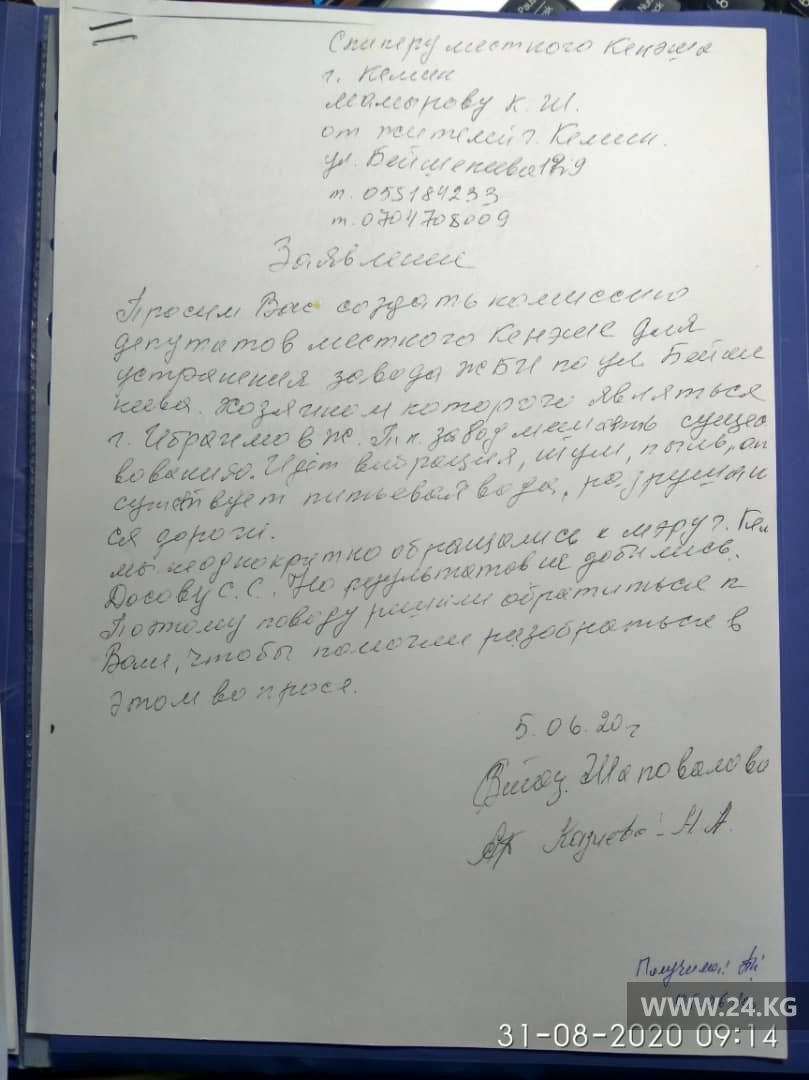 Спикеру местного Кенэша
г. Кемин
Мамырову К. Ш.
от жителей г. Кемин.
ул. Бейшенева
т. 055184233
т. 0704708009
Заявление
Просим Вас создать комиссию
депутатов местного Кенэша для
устранения завода ЖБИ по ул Бейше
нева. Хозяином которого являться
г. Ибраимов Ж. Т.к. завод мешать сущес
вованию. Идёт вибрация, шум, пыль, от
сутствует питьевая вода, разрушаю
ся дороги.
мы неоднократно обращались к мэру г. Кем
Досову С.С. Но результатов не добились.
Поэтому поводу решили обратиться к
Вам, чтобы помогли разобраться в
этом вопросе.
5. 06. 20 г
Шаповалова
Казиева Н. А.
Получила:
WWW.24.KG
31-08-2020 09:14